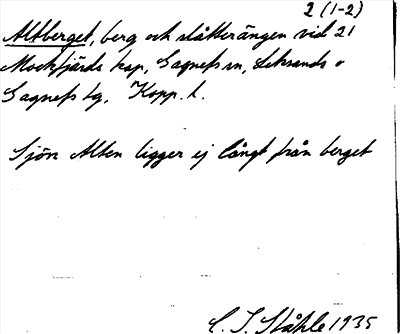 2 (1-2)
Altberget, berg och slåtterängen vid 21
Mockfjärds kap, Gagnefs sn, Leksands o
Gagnefs tg, Kopp. l.
Sjön Alten ligger ej långt från berget
C. I. Ståhle 1935